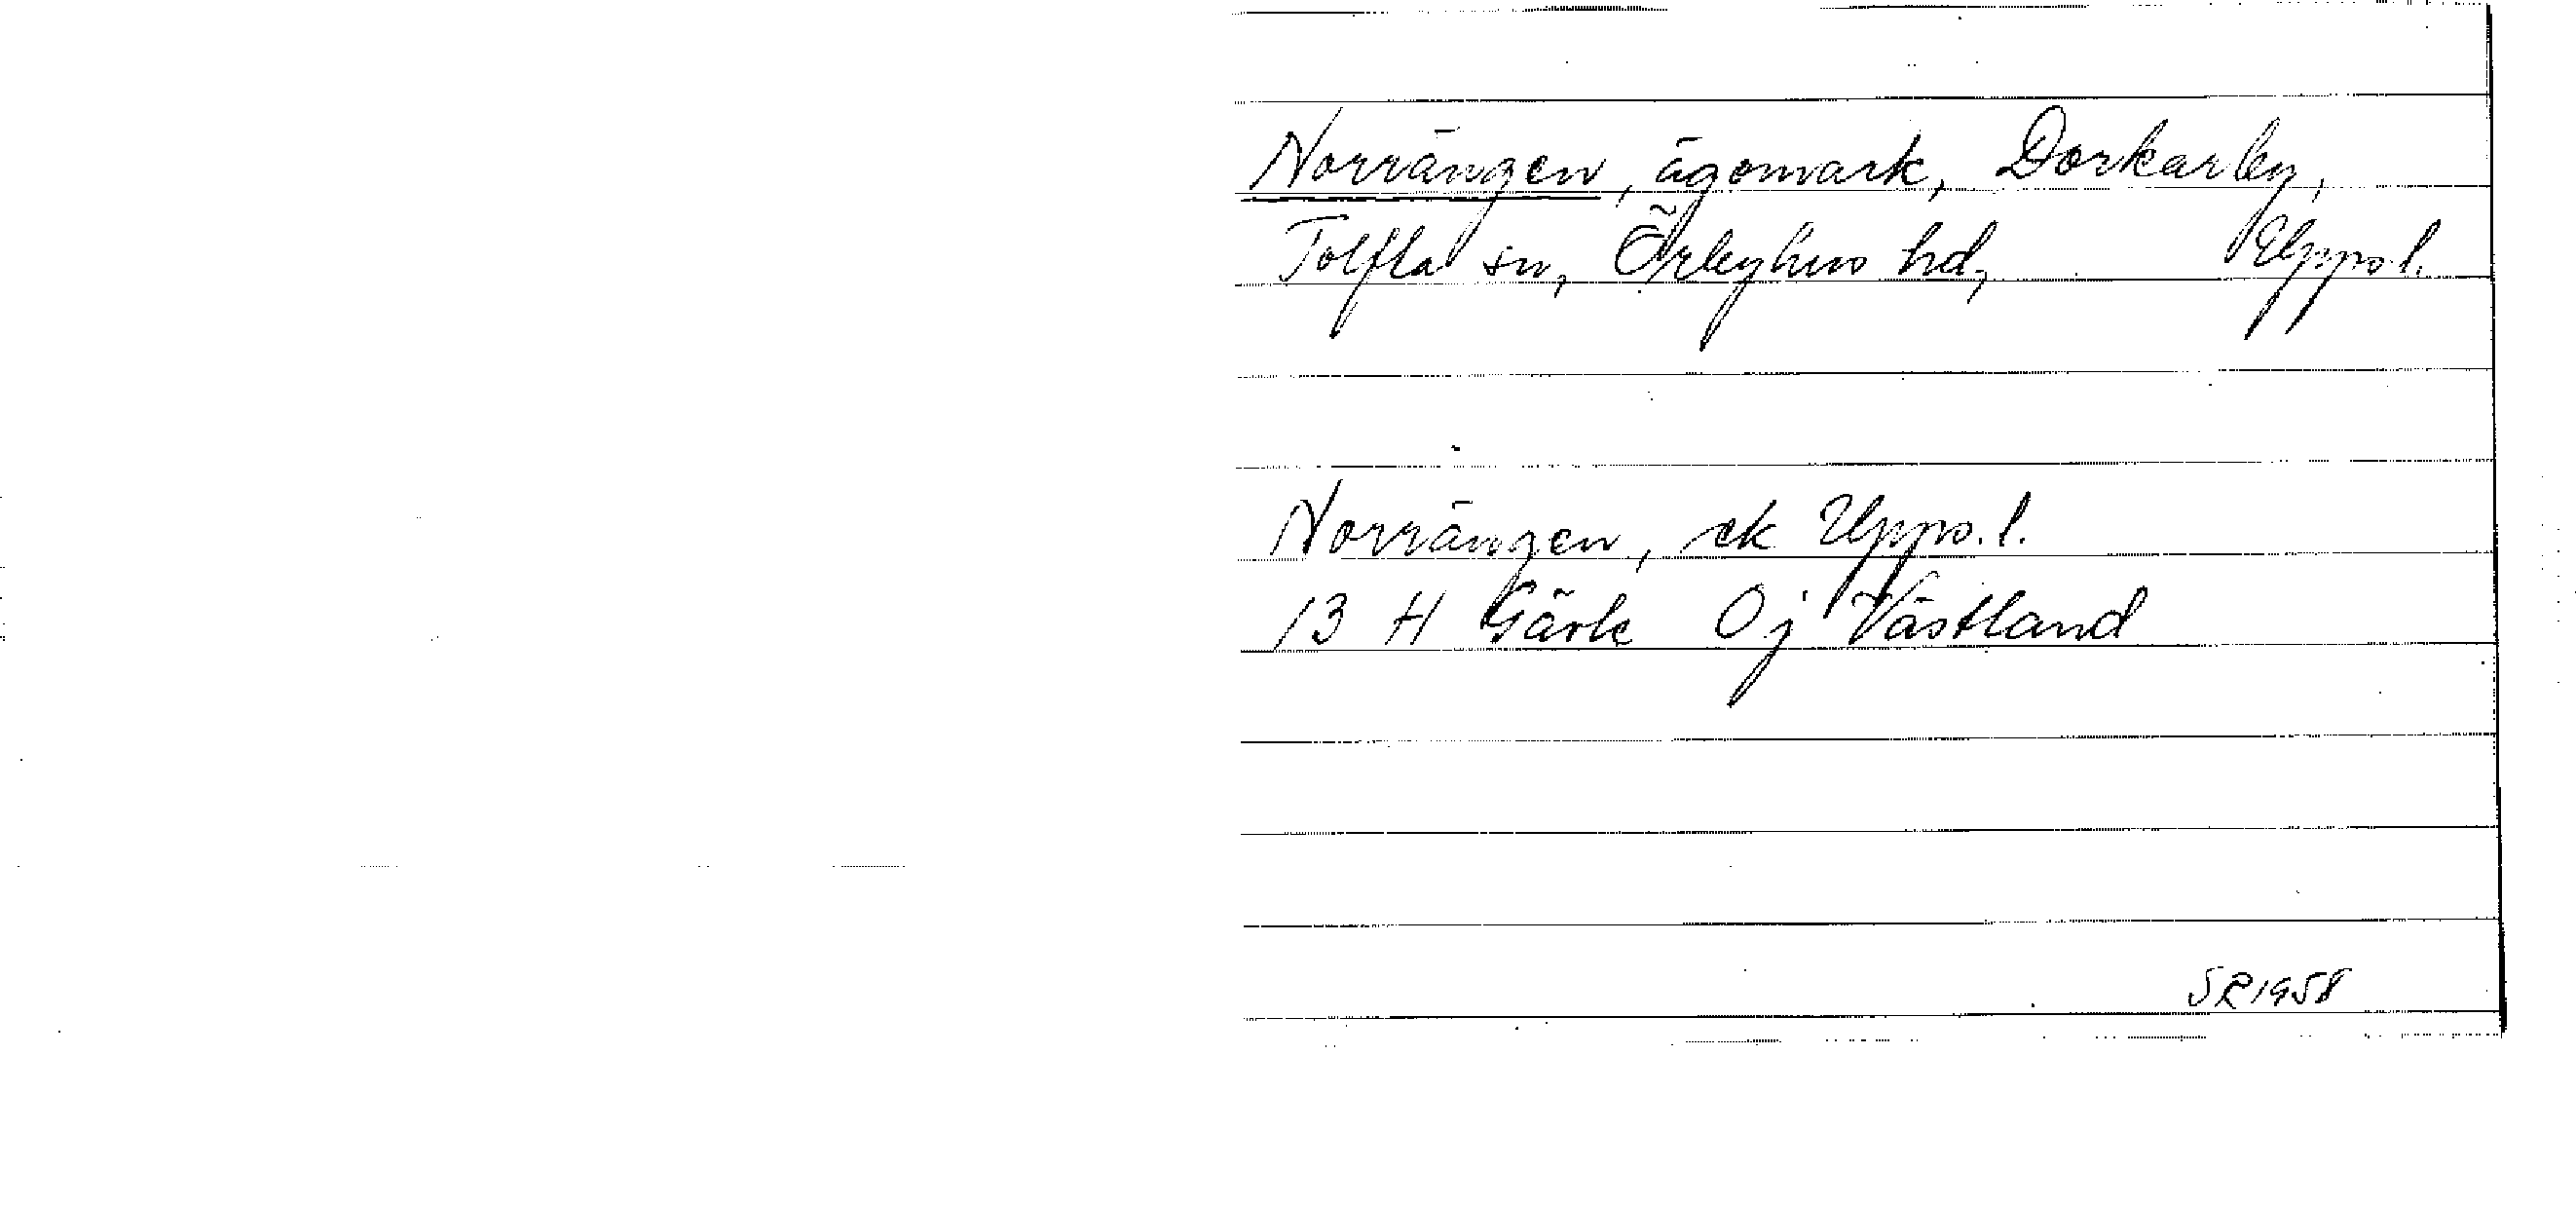 Norrängen, ägomark, Dorkarby,
Tolfta sn, Örbyhus hd, Upps. l.
Norrängen, ek Upps. l.
13 H Gävle 0j Västland
SR 1958